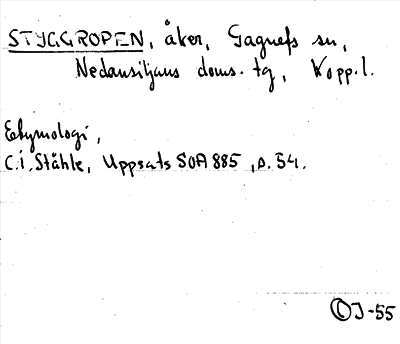 STYGGROPEN, åker, Gagnefs sn,
Nedansiljans doms. tg, Kopp.l.
Etymologi,
C.I. Ståhle, Uppsats SOA 885, s. 54.
CJ-55